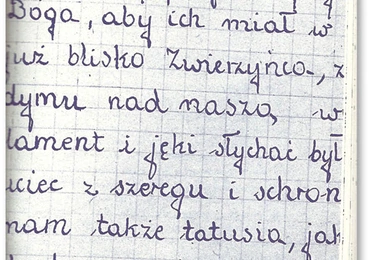 Boga, aby ich miał w
już blisko Zwierzyńca, z
dymu nad naszą w
lament i jęki słychać był
uciec z szeregu i schron
nam także tatusia, jak